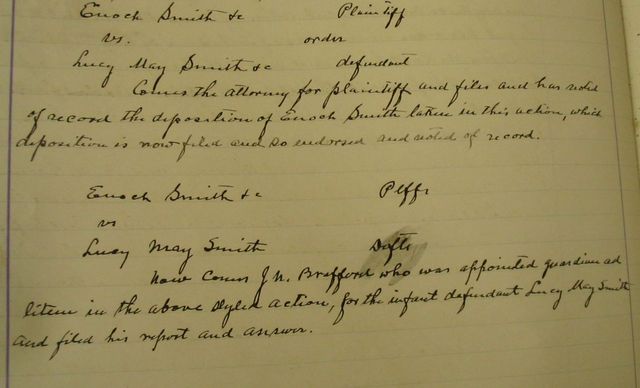 Enoch Smith &c Plaintiff
vs. order
Lucy May Smith &c defendant
Comes the attorney for plaintiff and files and has noted
of record the deposition of Enoch Smith taken in this action, which
deposition is now filed and so endorsed and noted of record.
Enoch Smith &c Plffs
vs
Lucy May Smith Defts
Now comes J.N. Brafford who was appointed guardian ad
litem in the above styled action, for the infant defendant Lucy May Smith
and filed his report and answer.